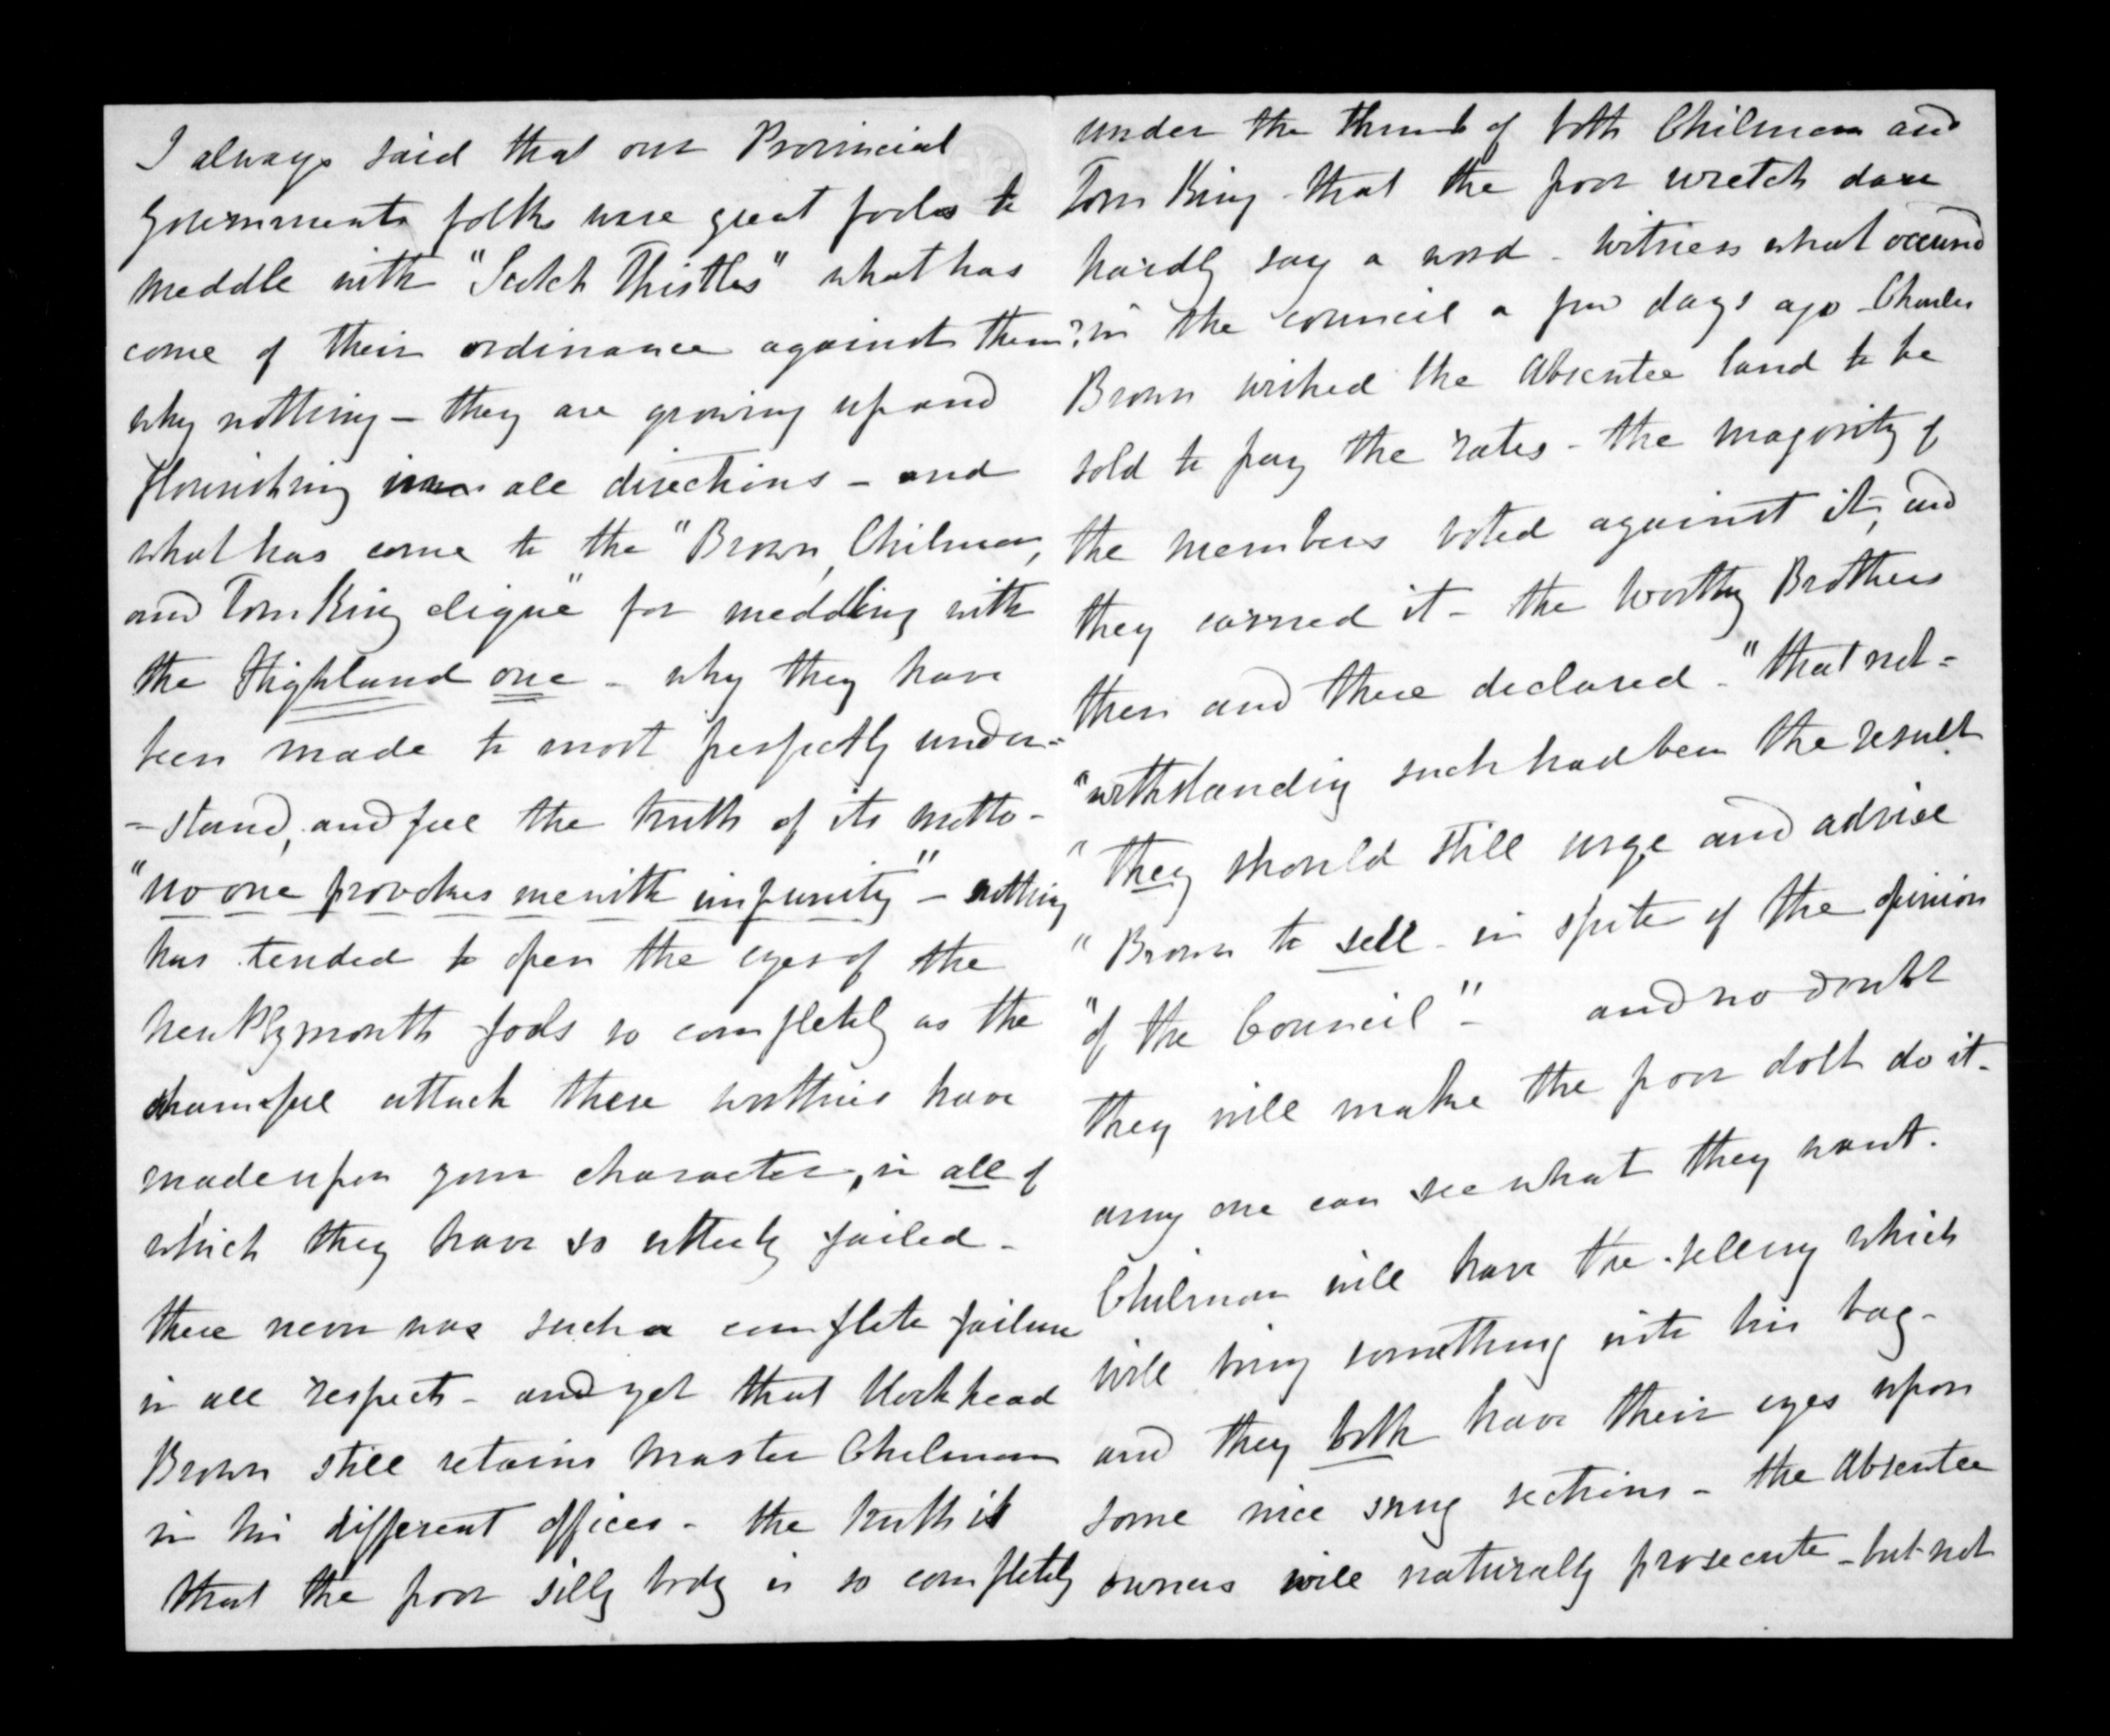 I always said that our Provincial
Governments folks were great fools to
meddle with "Scotch Thistles" what has
come of their ordinance against them?
why nothing - they are growing up and
flourishing in all directions - and
what has come to the "Brown, Chilman,
and Tom King clique" for meddling with
the Highland one - why they have
been made to most perfectly under=
=stand, and feel the truth of its motto -
"no one provokes me with impunity" - nothing
has tended to open the eyes of the
New Plymouth fools so completely as the
shameful attack these worthies have
made upon your character, in all of
which they have so utterly failed -
there never was such a complete failure
in all respects - and yet that blockhead
Brown still retains Master Chilman
in his different offices - the truth is
that the poor silly body is so completely
under the thumb of both Chilman and
Tom King - that the poor wretch dare
hardly say a word - witness what occurred
in the council a few days ago - Charles
Brown wished the Absentee land to be
sold to pay the rates - the majority of
the members voted against it, and
they carried it - the worthy Brothers
then and there declared - "that not=
"withstanding such had been the result
"they should still urge and advise
"Brown to sell - in spite of the opinion
"of the Council" - and no doubt
they will make the poor dolt do it -
any one can see what they want.
Chilman will have the selling which
will bring something into his bag -
and they both have their eyes upon
some nice snug sections - the Absentee
owners will naturally prosecute - but not